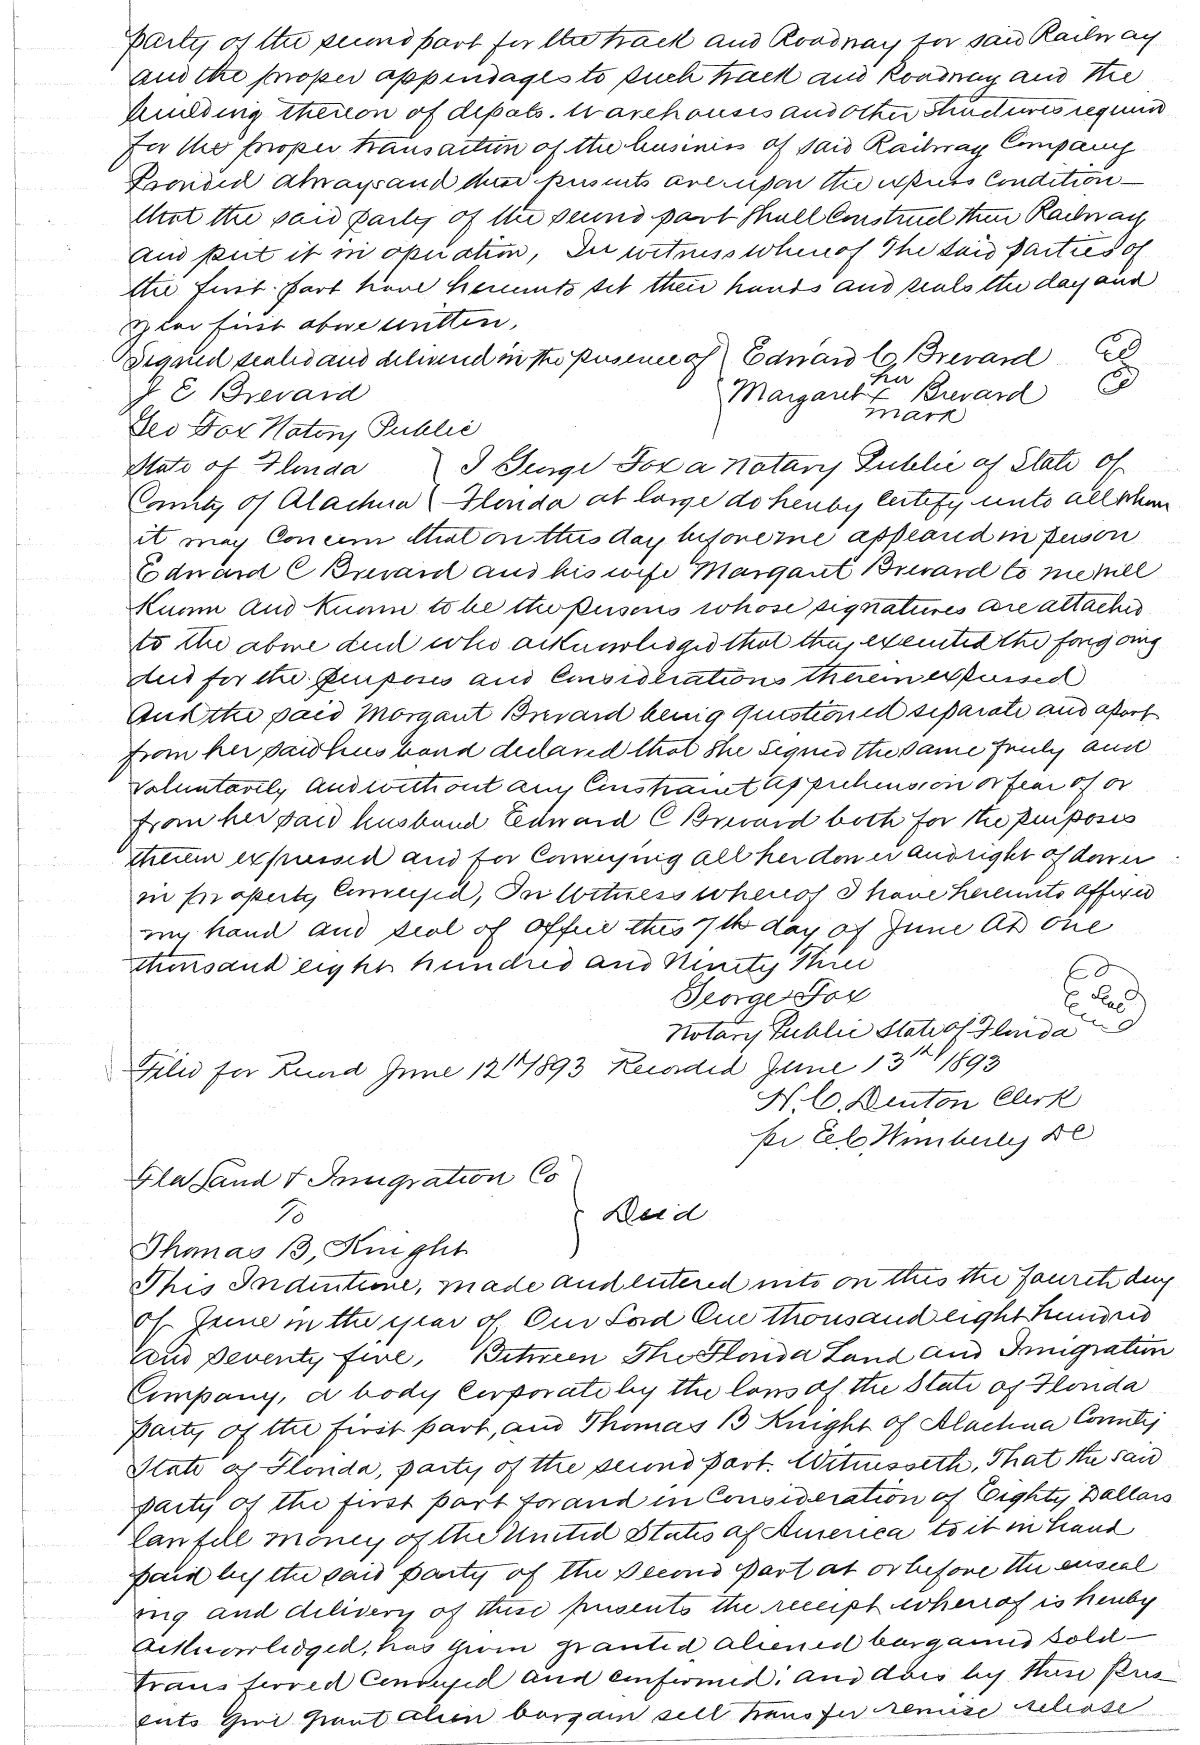 party of the second part for the track and Roadway for said Railway
and the proper appendages to such track and Roadway and the
building thereon of depots. Warehouses and other structures required
for the proper transaction of the business of said Railway Company
Provided always and these presents are upon the express Condition—
that the said party of the second part shall Construct their Railway
and put it in operation, In witness whereof The said parties of
the first part have hereunto set their hands and seals the day and
year first above written,
Signed sealed and delivered in the presence of } Edward C Brevard
J E Brevard
Margaret her x mark Brevard
Geo Fox Notary Public
State of Florida } I George Fox a Notary Public of State of
County of Alachua } Florida at large do hereby Certify unto all whom
it may Concern that on this day before me appeared in person
Edward C Brevard and his wife Margaret Brevard to me well
Known and Known to be the persons whose signatures are attached
to the above deed who acknowledged that they executed the forgoing
deed for the purposes and Considerations therein expressed
And the said Margaret Brevard being questioned separate and apart
from her said husband declared that she signed the same freely and
voluntarily and without any Constraint apprehension or fear of or
from her said husband Edward C Brevard both for the purposes
therein expressed and for Conveying all her dower and right of dower
in property Conveyed, In Witness whereof I have hereunto affixed
my hand and seal of office this 7th day of June AD one
thousand eight hundred and Ninety Three
George Fox
Notary Public State of Florida
Seal
Filed for Record June 12th 1893 Recorded June 13th 1893
H. C. Denton Clerk
pr E. C. Wimberly DC
Fla Land & Imigration Co
To } Deed
Thomas B, Knight
This Indenture, made and entered into on this the fourth day
of June in the year of Our Lord One thousand eight hundred
and seventy five, Between The Florida Land and Imigration
Company, a body Corporate by the laws of the State of Florida
party of the first part, and Thomas B Knight of Alachua County
State of Florida, party of the second part. Witnesseth, That the said
party of the first part for and in Consideration of Eighty Dollars
lawfull money of the United States of America to it in hand
paid by the said party of the second part at or before the enseal
ing and delivery of these presents the receipt whereof is hereby
acknowledged, has given granted aliened bargained sold—
transferred Conveyed and confirmed; and does by these Pres
ents give grant alien bargain sell transfer remise release